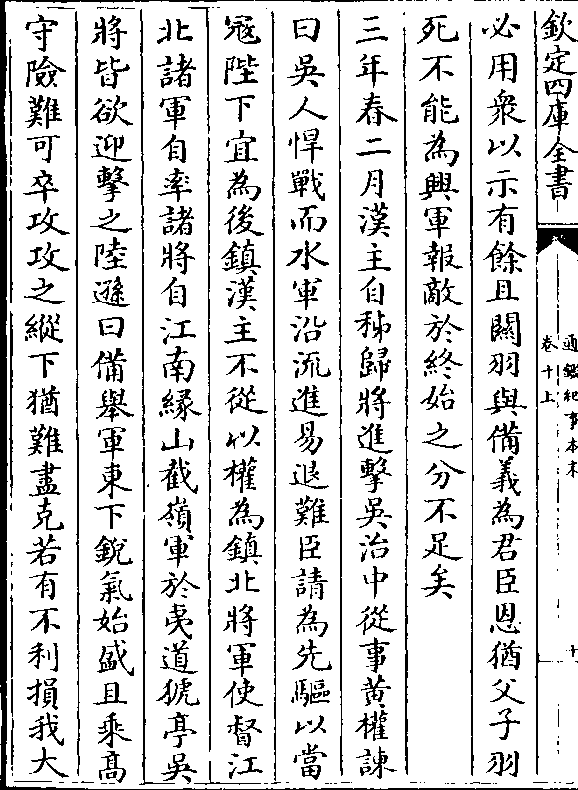 欽定四庫全書
通鑑紀事本末
卷十上
十
必用衆以示有餘且關羽與備義為君臣恩猶父子羽
死不能為興軍報敵於終始之分不足矣
三年春二月漢主自秭歸將進擊吳治中從事黄權諫
曰吳人悍戰而水軍沿流進易退難臣請為先驅以當
宼陛下宜為後鎮漢主不從以權為鎮北將軍使督江
北諸軍自率諸將自江南緣山截嶺軍於夷道猇亭吳
將皆欲迎擊之陸遜曰備舉軍東下銳氣始盛且乘髙
守險難可卒攻攻之縱下猶難盡克若有不利損我大